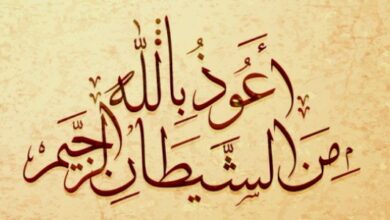 أَعُوذُ بِاللهِ
مِنَ الشَّيْطَانِ الرَّجِيْمِ